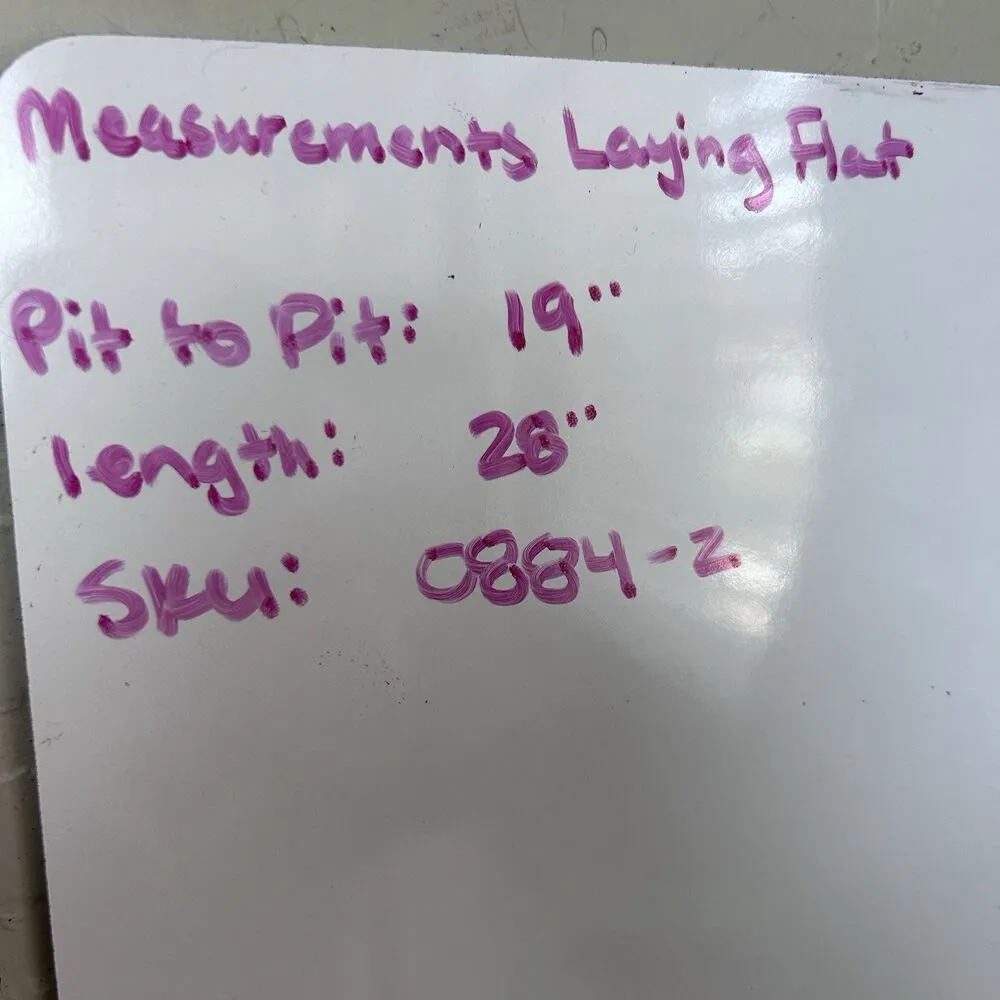 Measurements Laying Flat
Pit to Pit: 19"
length: 28"
SKU: 0884-2